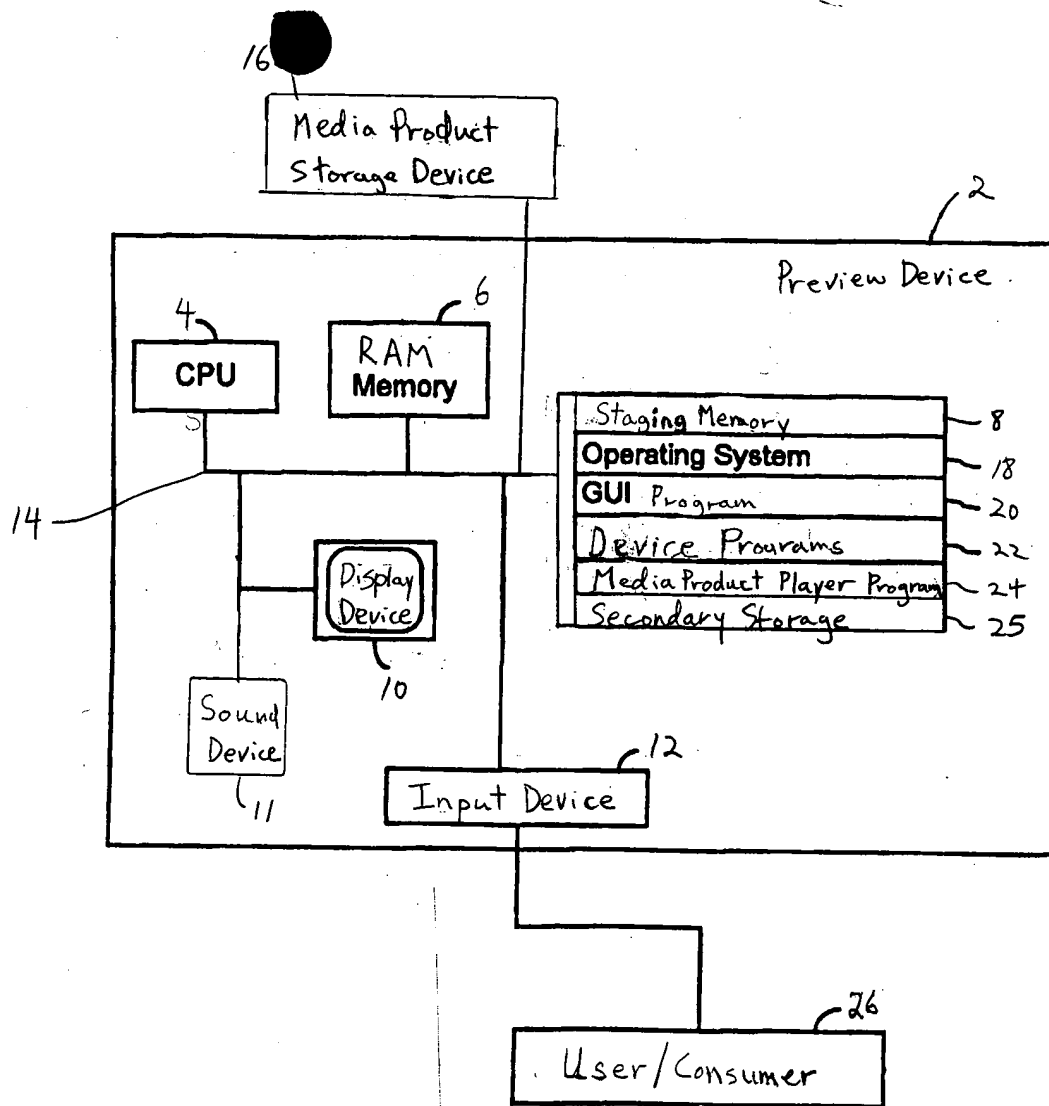 16
Media Product
Storage Device
2
Preview Device.
4
CPU
6
RAM
Memory
S
Staging Memory
8
Operating System
18
GUI Program
20
Device Prourams
22
Media Product Player Program
24
Secondary Storage
25
14
Display
Device
10
Sound
Device
11
12
Input Device
26
User/Consumer